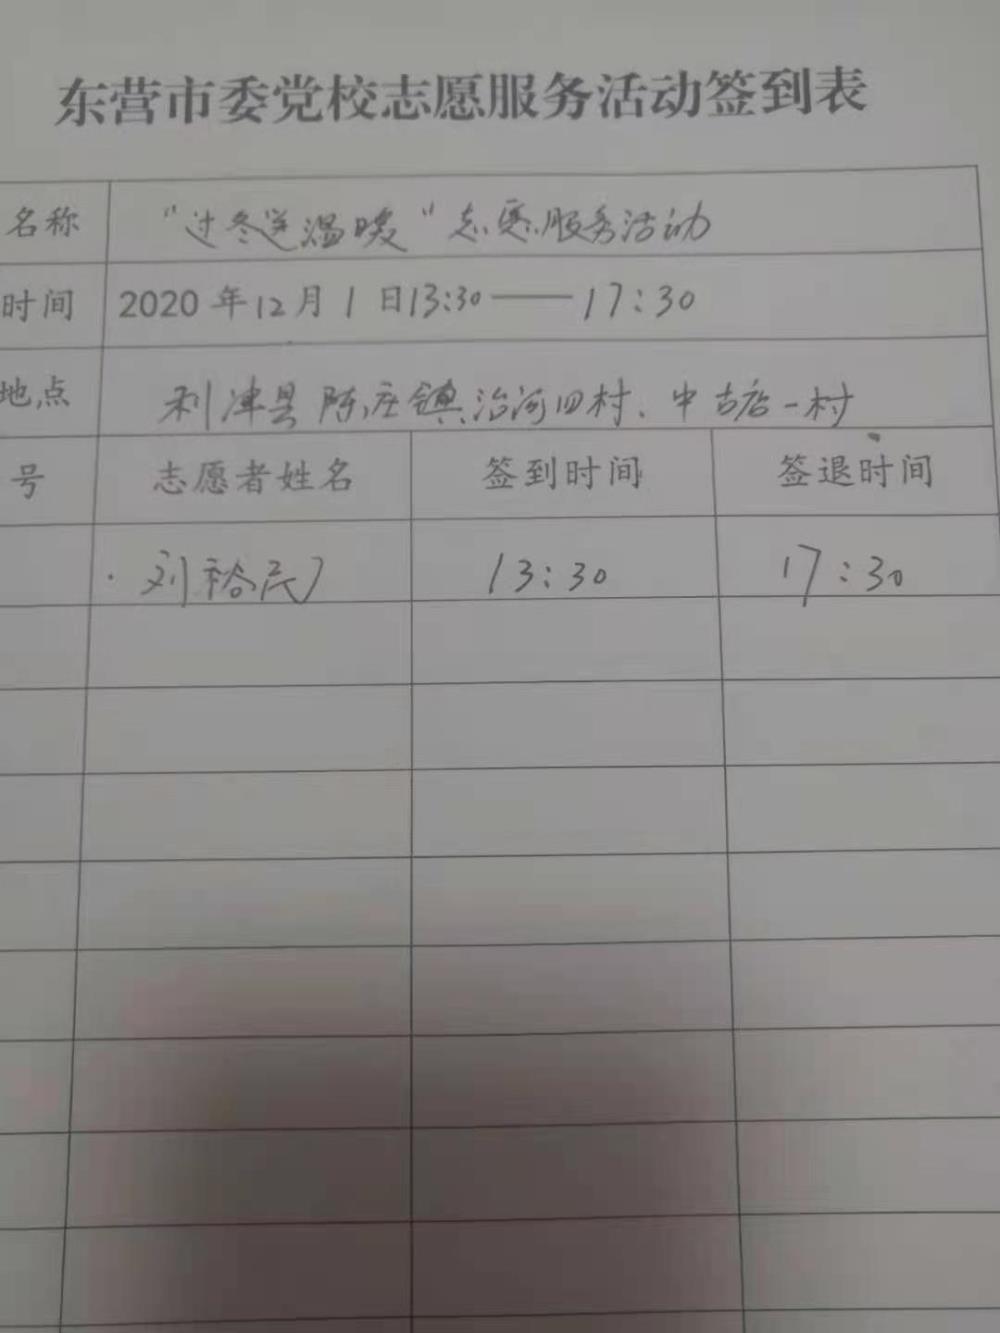 东营市委党校志愿服务活动签到表
名称 “过冬送温暖”志愿服务活动
时间 2020年12月1日13:30——17:30
地点 利津县陈庄镇治河四村、中古店一村
号 志愿者姓名 签到时间 签退时间
刘裕民 13:30 17:30